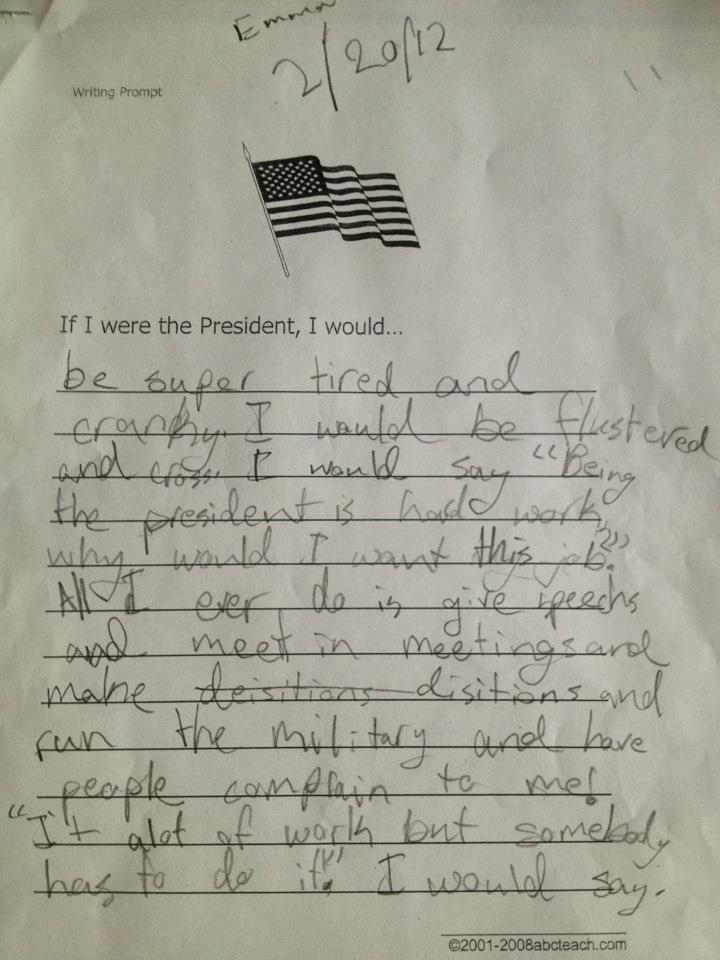 Emma
2/20/12
Writing Prompt
If I were the President, I would...
be super tired and
cranky. I would be flustered
and cross. I would say "Being
the president is hard work,
why would I want this job?"
All I ever do is give speechs
and meet in meetings and
make deisitions disitions and
run the military and have
people complain to me!
"I't alot of work but somebody
has to do it". I would say.
©2001-2008abcteach.com